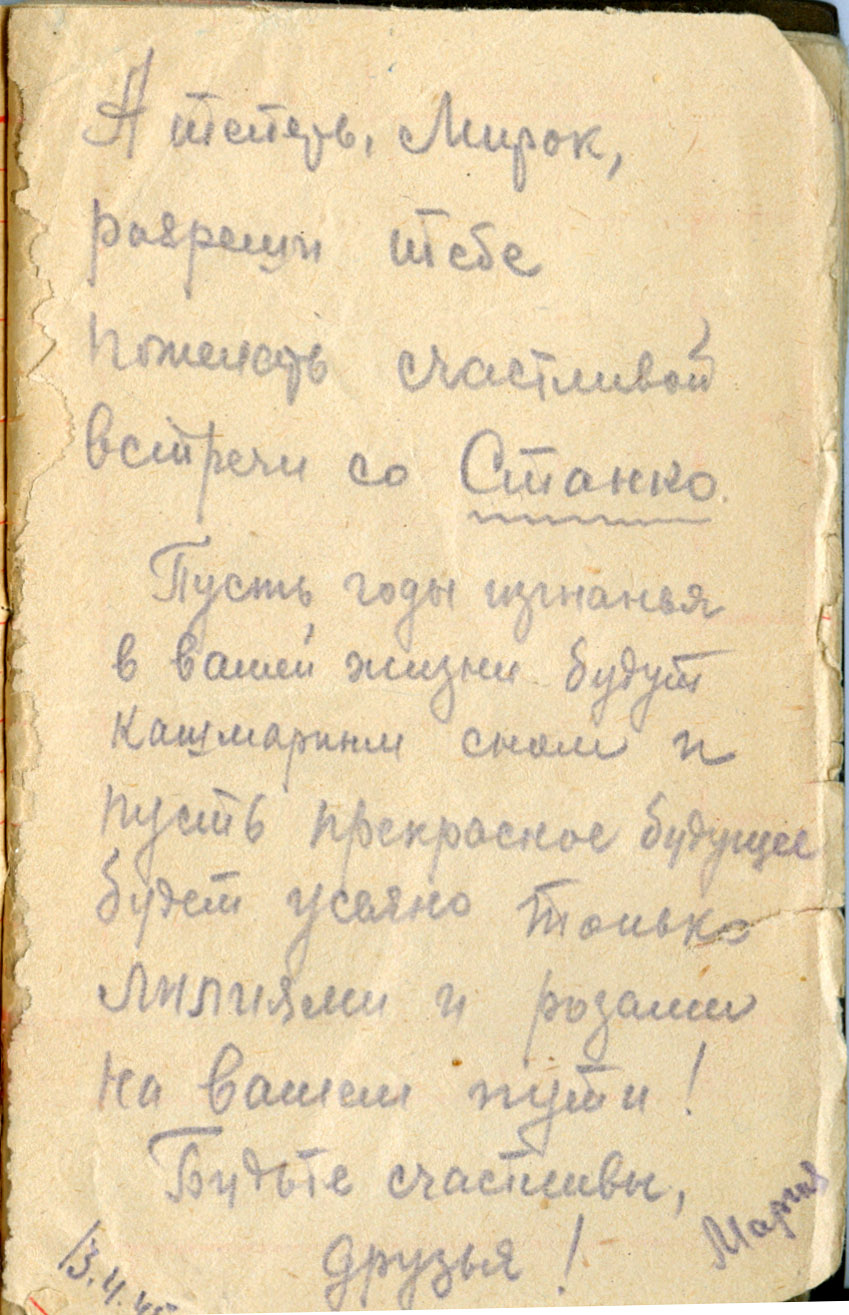 А теперь, Мирок,
розреши тебе
пожелать счастливой
встречи со Станко.
Пусть годы изгнанья
в вашей жизни будут
кашмарным сном и
пусть прекрасное будущее
будет усеяно только
лилиями и розами
на вашем пути!
Будьте счастливы,
друзья!
Мария
13.4.45